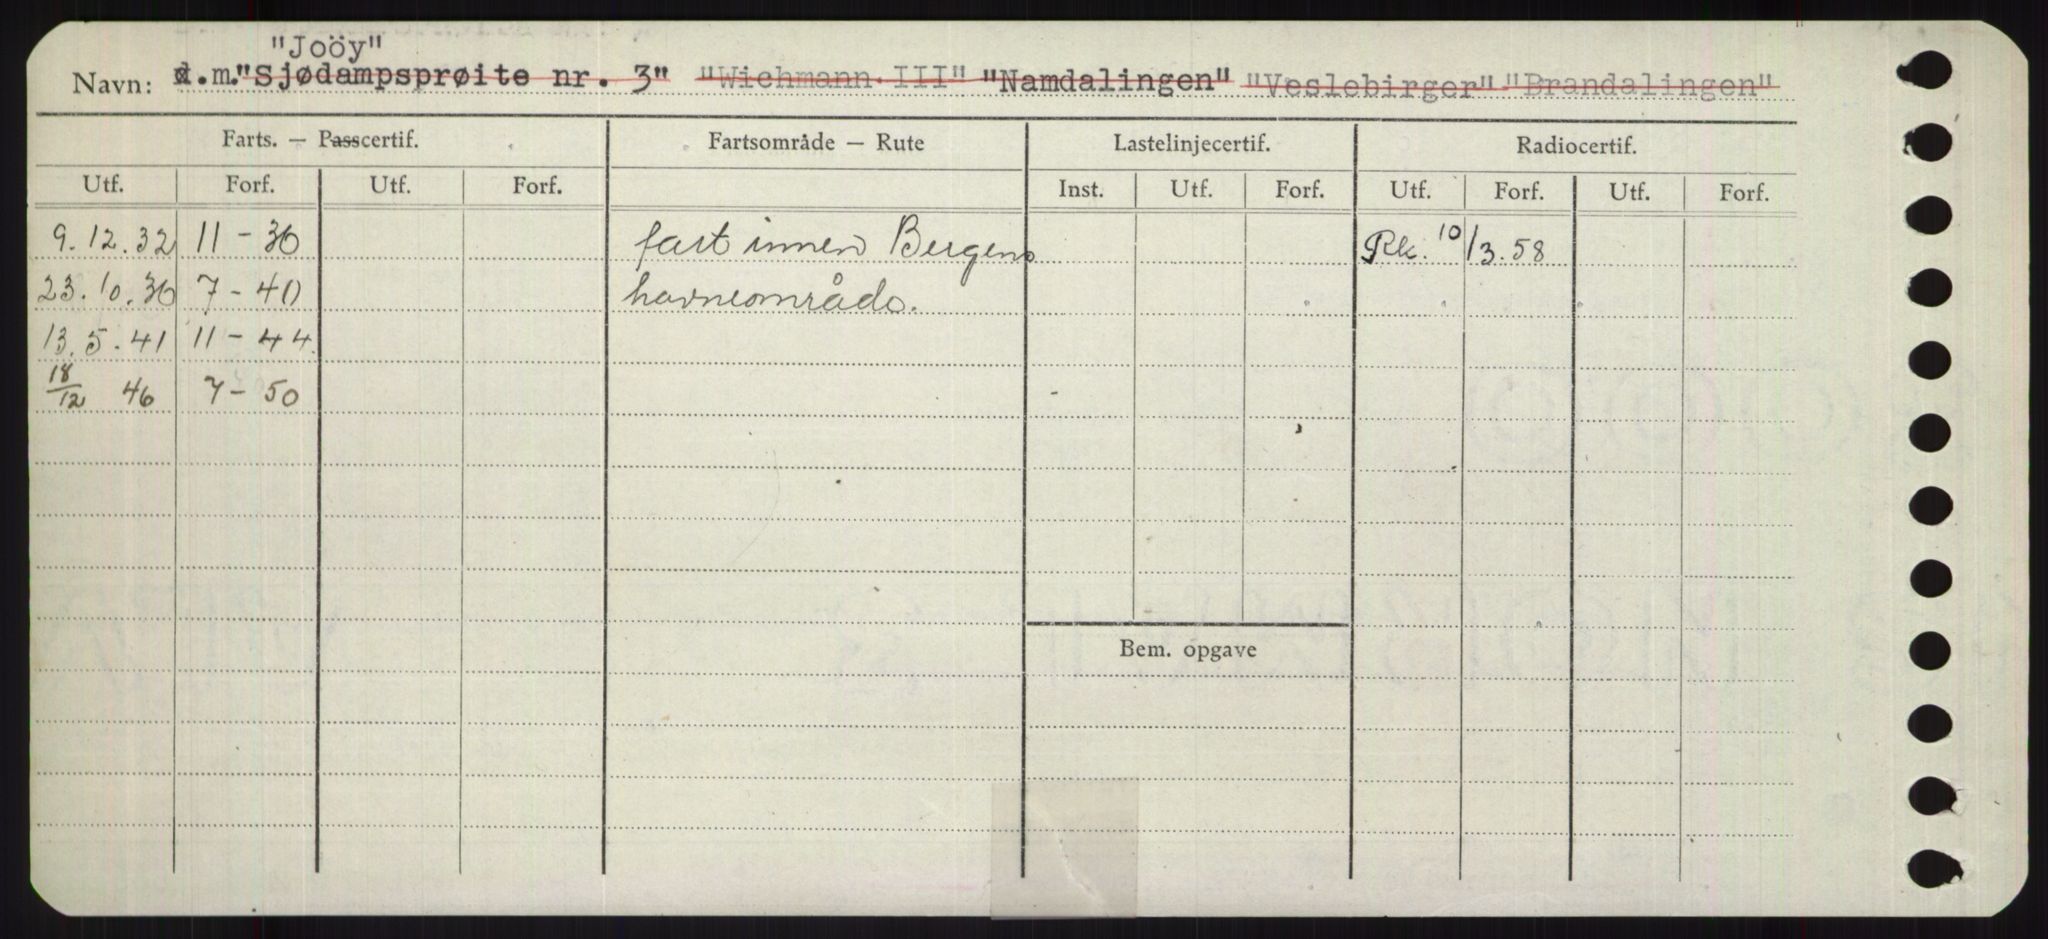 "Joöy"
Navn: d.m."Sjødampsprøite nr. 3" "Wichmann III" "Namdalingen" "Veslebirger" "Brandalingen"
Farts. — Passcertif. Fartsområde — Rute Lastelinjecertif. Radiocertif.
Utf. Forf. Utf. Forf. Inst. Utf. Forf. Utf. Forf. Utf. Forf.
9.12.32 11-36 fart innen Bergens Rk. 10/3.58
23.10.36 7-40 havneområde.
13.5.41 11-44
18/12 46 7-50
Bem. opgave